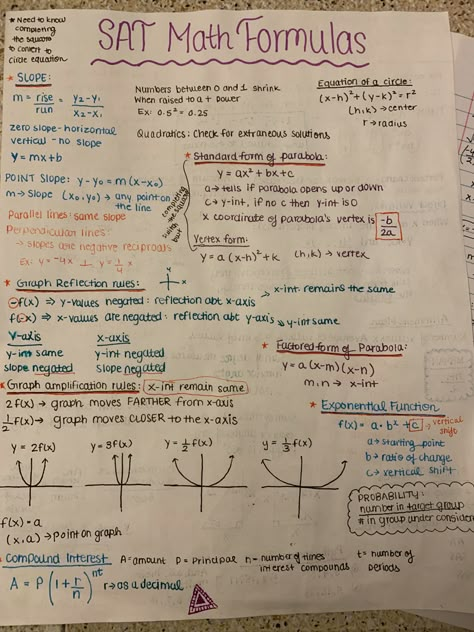 * Need to know
completing
the square
to convert to
circle equation
SAT Math Formulas
* SLOPE:
m = rise/run = y₂-y₁/x₂-x₁
zero slope-horizontal
vertical - no slope
y = mx+b
POINT Slope: y-y₀ = m(x-x₀)
m → Slope (x₀,y₀) → any point on
the line
Parallel lines: same slope
Perpendicular lines:
→ slopes are negative reciprocals
Ex: y=-4x ⊥ y=1/4 x
Numbers between 0 and 1 shrink
when raised to a + power
Ex: 0.5² = 0.25
Equation of a circle:
(x-h)²+(y-k)²=r²
(h,k)→center
r→radius
Quadratics: Check for extraneous solutions
* Standard form of parabola:
y = ax² + bx+c
a → tells if parabola opens up or down
c → y-int, if no c then y-int is 0
x coordinate of parabola's vertex is -b/2a
completing the square
switch
Vertex form:
y = a(x-h)²+k (h,k) → vertex
* Graph Reflection rules:
y
x
-f(x) ⇒ y-values negated: reflection abt x-axis → x-int remains the same
f(-x) ⇒ x-values are negated: reflection abt y-axis → y-int same
y-axis x-axis
y-int same y-int negated
slope negated slope negated
* Factored form of Parabola:
y = a(x-m)(x-n)
m,n → x-int
* Graph amplification rules: (x-int remain same)
2f(x) → graph moves FARTHER from x-axis
1/2 f(x) → graph moves CLOSER to the x-axis
* Exponential Function
f(x) = a·b^x +c → vertical
shift
a → starting point
b → ratio of change
c → vertical shift
y = 2f(x) y = 3f(x) y = 1/2 f(x) y = 1/3 f(x)
PROBABILITY:
number in target group
# in group under consider
f(x) = a
(x,a) → point on graph
* Compound Interest A=amount P=Principal n-number of times
interest compounds
t=number of
periods
A = P(1+r/n)^nt r → as a decimal